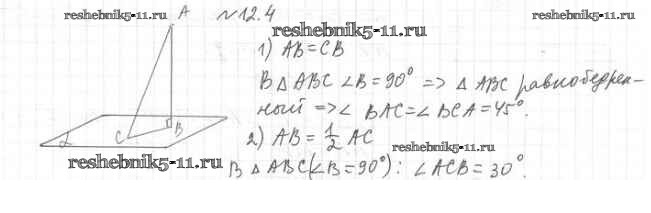 reshebnik5-11.ru
A
№12.4
reshebnik5-11.ru
reshebnik5-11.ru
1) AB = CB
В △ ABC ∠B = 90° => △ ABC равнобедрен-
ный => ∠ BAC = ∠ BCA = 45°.
C
B
α
2) AB = 1/2 AC
reshebnik5-11.ru
reshebnik5-11.ru
В △ ABC (∠B = 90°): ∠ACB = 30°.